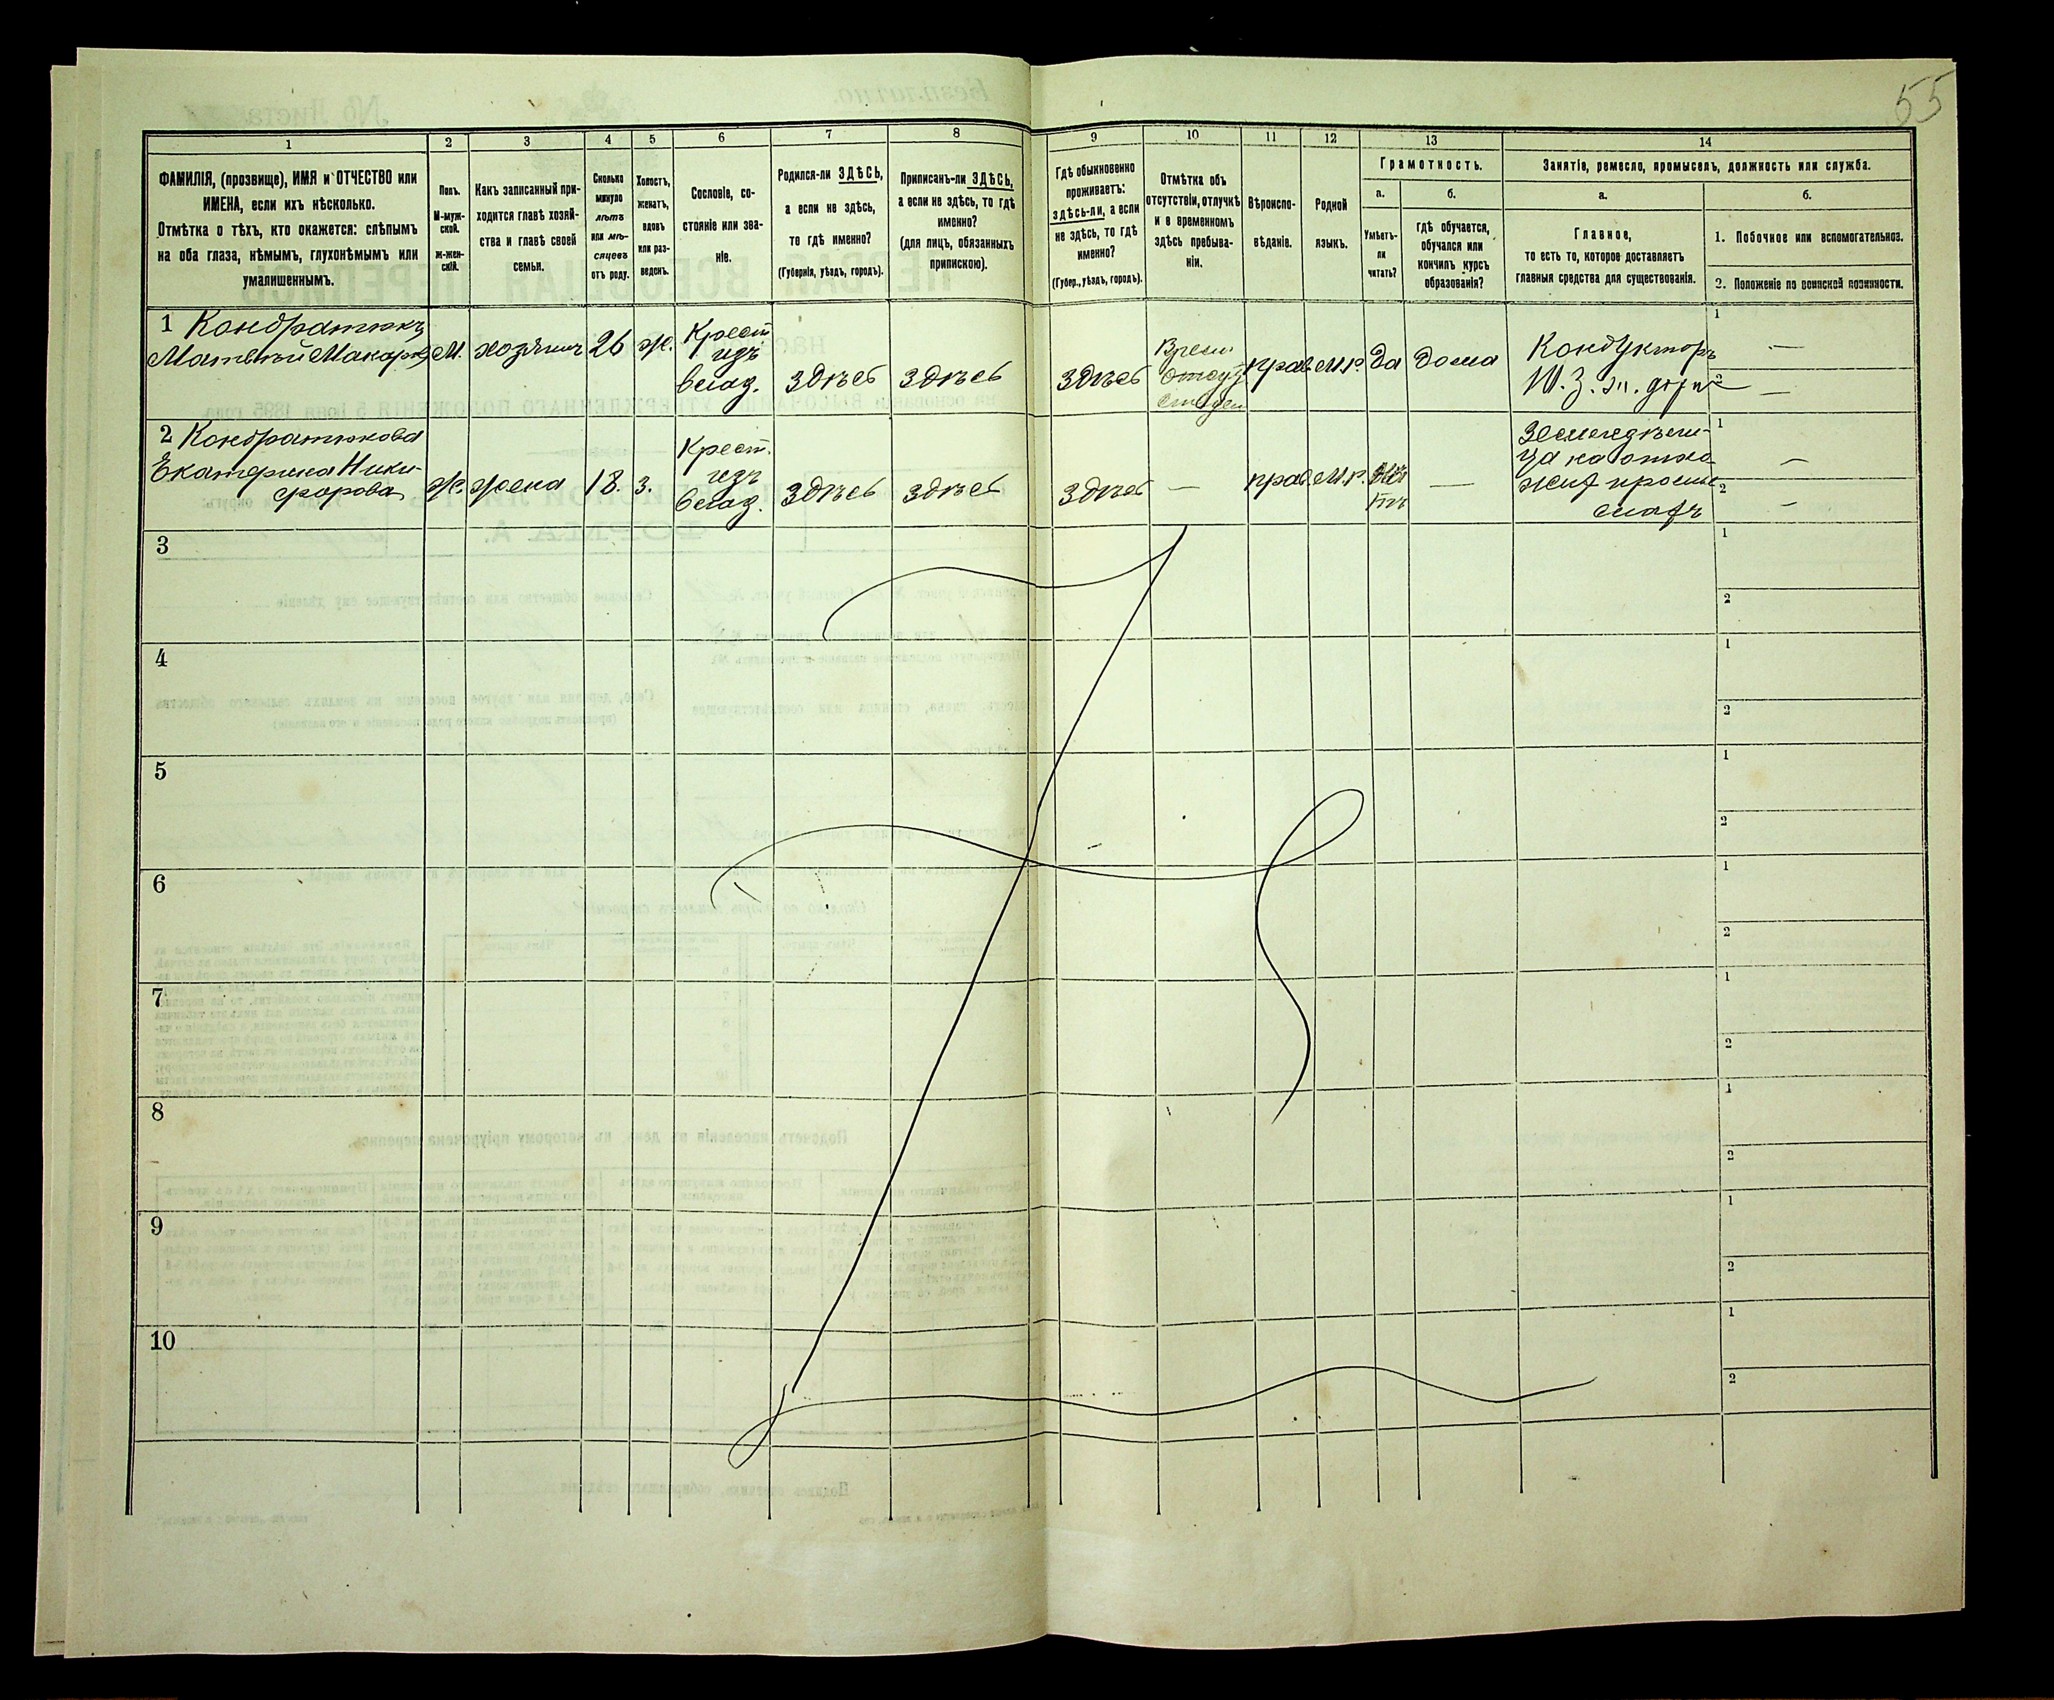 55
1
2
3
4
5
6
7
8
9
10
11
12
13
14
ФАМИЛІЯ, (прозвище), ИМЯ и ОТЧЕСТВО или
ИМЕНА, если ихъ нѣсколько.
Отмѣтка о тѣхъ, кто окажется: слѣпымъ
на оба глаза, нѣмымъ, глухонѣмымъ или
умалишеннымъ.
Полъ.
М-муж-
ской.
ж-жен-
скій.
Какъ записанный при-
ходится главѣ хозяй-
ства и главѣ своей
семьи.
Сколько
минуло
лѣтъ
или мѣ-
сяцевъ
отъ роду.
Холостъ,
женатъ,
вдовъ
или раз-
веденъ.
Сословіе, со-
стояніе или зва-
ніе.
Родился-ли ЗДѢСЬ,
а если не здѣсь,
то гдѣ именно?
(Губернія, уѣздъ, городъ).
Приписанъ-ли ЗДѢСЬ,
а если не здѣсь, то гдѣ
именно?
(для лицъ, обязанныхъ
припискою).
Гдѣ обыкновенно
проживаетъ:
здѣсь-ли, а если
не здѣсь, то гдѣ
именно?
(Губер., уѣздъ, городъ).
Отмѣтка объ
отсутствіи, отлучкѣ
и о временномъ
здѣсь пребыва-
ніи.
Вѣроиспо-
вѣданіе.
Родной
языкъ.
Грамотность.
а.
Умѣетъ-
ли
читать?
б.
гдѣ обучается,
обучался или
кончилъ курсъ
образованія?
Занятіе, ремесло, промыселъ, должность или служба.
а.
Главное,
то есть то, которое доставляетъ
главныя средства для существованія.
б.
1. Побочное или вспомогательное.
2. Положеніе по воинской повинности.
1 Кондратюкъ
Матвѣй Макаров
М.
хозяин
26
ж.
Крест
изъ
влад.
здѣсь
здѣсь
здѣсь
Врем.
прав
М.р.
да
дома
Кондукторъ
1
—
2
—
2 Кондратюкова
Екатерина Ники-
форова
ж.
жена
18.
з.
Крест.
изъ
влад.
здѣсь
здѣсь
здѣсь
—
прав
М.р.
—
Земледѣли-
1
—
2
—
3
1
2
4
1
2
5
1
2
6
1
2
7
1
2
8
1
2
9
1
2
10
1
2